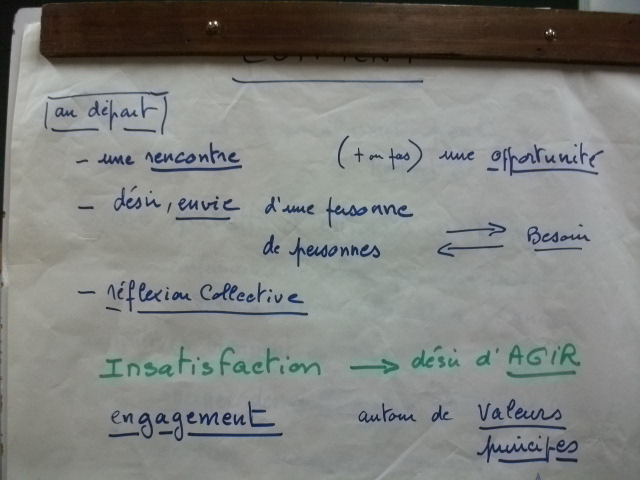 au départ
- une rencontre (+ ou pas) une opportunité
- désir, envie d'une personne
de personnes Besoin
- réflexion Collective
Insatisfaction → désir d'AGIR
engagement autour de Valeurs
principes